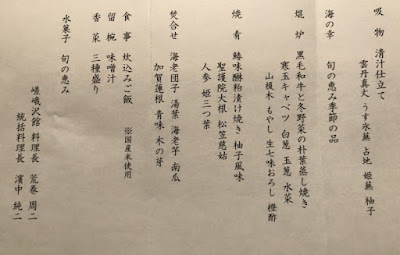 吸物 清汁仕立て
雲丹真丈 うす氷蕪 占地 姫蕪 柚子
海の幸 旬の恵み季節の品
焜炉 黒毛和牛と冬野菜の朴葉蒸し焼き
寒玉キャベツ 白葱 玉葱 水菜
山榎木 もやし 生七味おろし 橙酢
焼肴 鰆味醂粕漬け焼き 柚子風味
聖護院大根 松笠慈姑
人参 姫三つ葉
焚合せ 海老団子 湯葉 海老芋 南瓜
加賀蓮根 青味 木の芽
食事 炊込みご飯 ※国産米使用
留椀 味噌汁
香菜 三種盛り
水菓子 旬の恵み
嵯峨沢館 料理長 荒巻 周二
統括料理長 濱中 純二